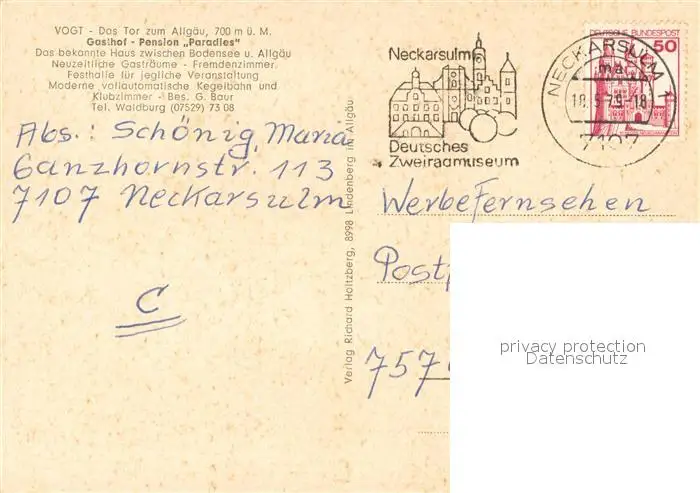 VOGT - Das Tor zum Allgäu, 700 m ü. M.
Gasthof - Pension „Paradies"
Das bekannte Haus zwischen Bodensee u. Allgäu
Neuzeitliche Gasträume - Fremdenzimmer
Festhalle für jegliche Veranstaltung
Moderne vollautomatische Kegelbahn und
Klubzimmer - Bes. G. Baur
Tel. Waldburg (07529) 73 08
Abs.: Schönig, Maria
Ganzhornstr. 113
7107 Neckarsulm
C
Verlag Richard Holtzberg, 8998 Lindenberg im Allgäu
Neckarsulm
Deutsches
Zweiradmuseum
NECKARSULM 1
ma
18
7107
DEUTSCHE BUNDESPOST
50
Werbefernsehen
Postf
757
privacy protection
Datenschutz